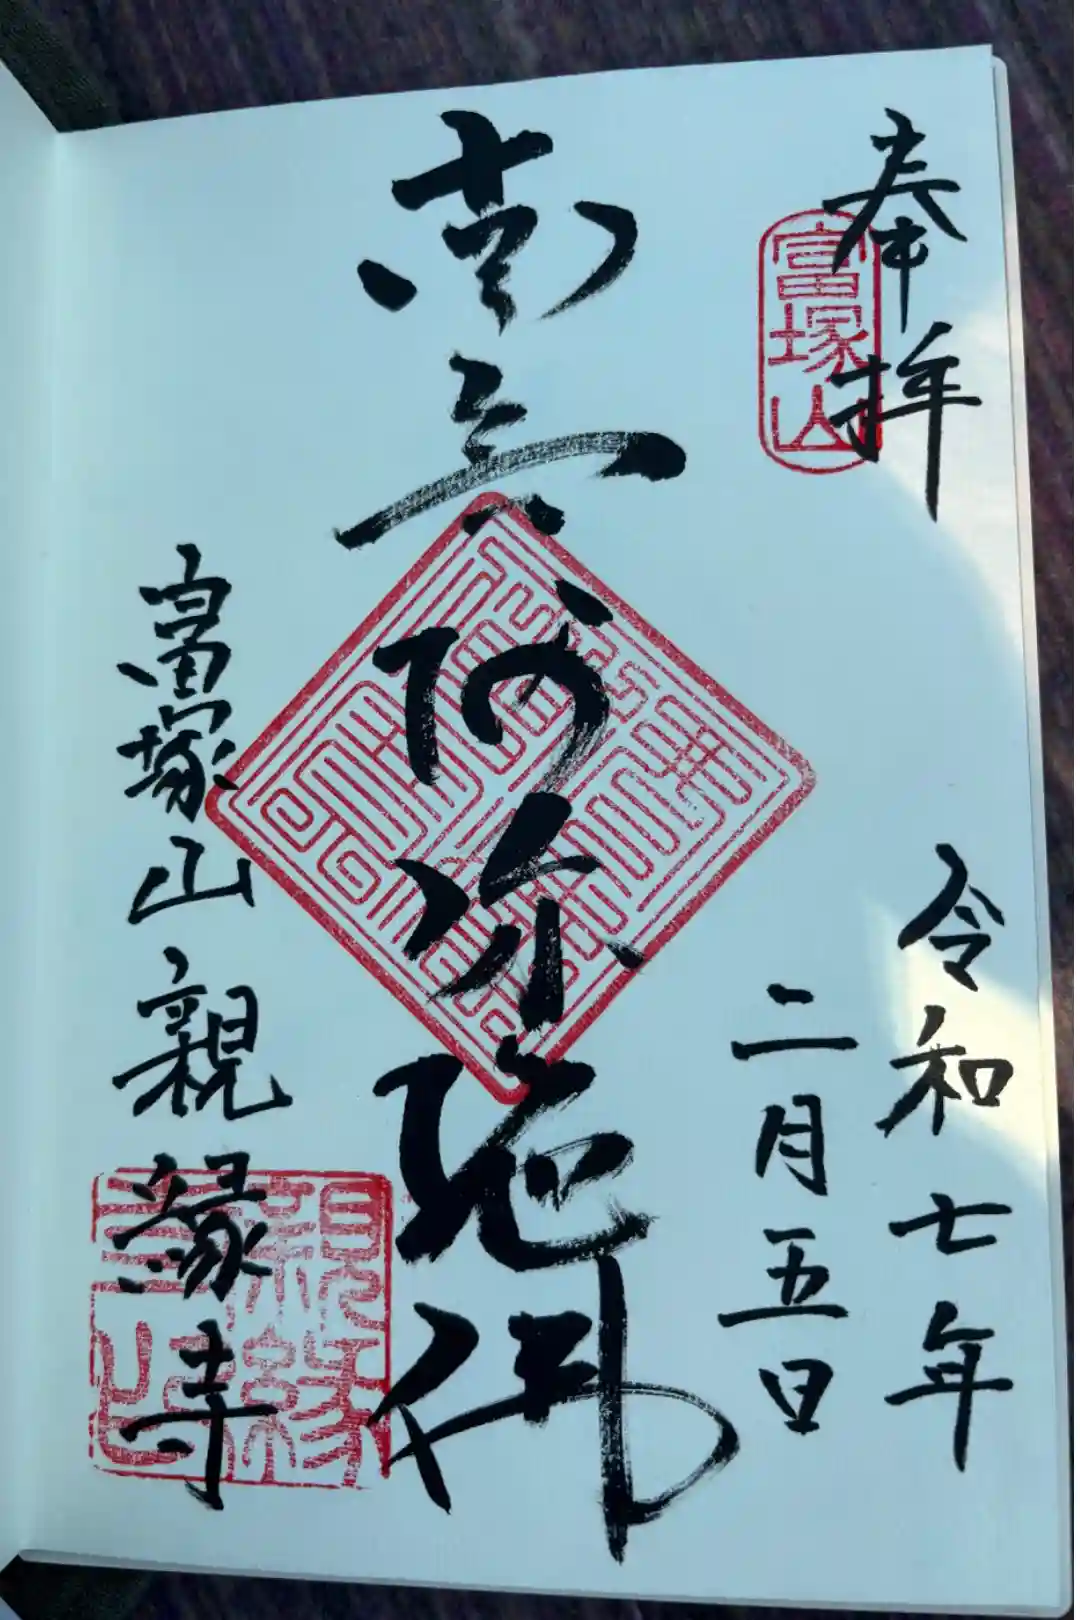 奉拝
富塚山
令和七年
二月五日
南無阿弥陀佛
富塚山親縁寺
親縁
寺印